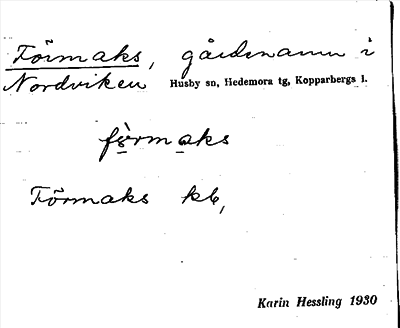 Förmaks, gårdsnamn i
Nordviken Husby sn, Hedemora tg, Kopparbergs l.
förmaks
Förmaks kb,
Karin Hessling 1930